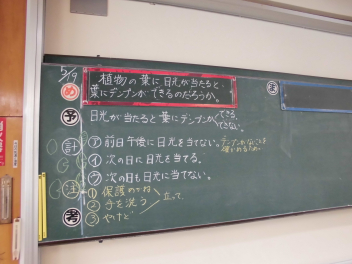 5/9
め 植物の葉に日光が当たると、
葉にデンプンができるのだろうか。
予 日光が当たると葉にデンプンが できる。
できない。
計 ㋐ 前日午後に日光を当てない。デンプンがないことを
確かめるため
㋑ 次の日に日光を当てる。
㋒ 次の日も日光に当てない。
注 ① 保護めがね
② 手を洗う 立って、
③ やけど
考